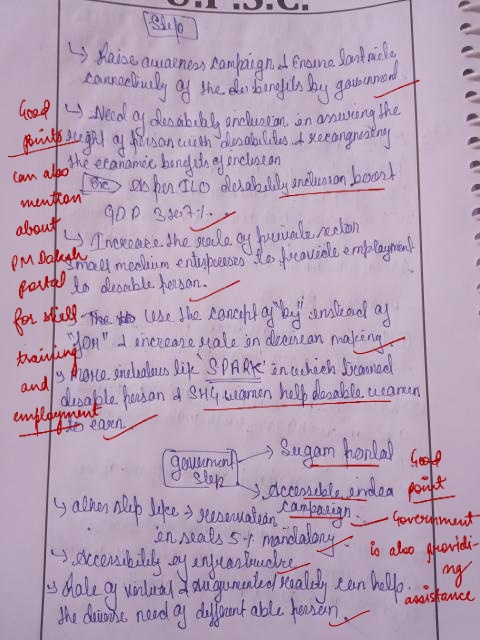 U.P.S.C.
Step
↳ Raise awareness campaign & Ensure last mile
connectivity of the benefits by government
↳ Need of disability inclusion in assuring the
right of person with disabilities & recongnising
the economic benefits of inclusion
As per ILO disability inclusion boost
GDP 3 to 7%.
↳ Increase the role of private sector
small medium enterprises to provide employment
to disable person.
Use the concept of "by" instead of
"for" & increase role in decision making
↳ More inclusive like 'SPARK' in which trained
disable person & SHG women help disable women
to earn
Government Step
→ Sugam portal
→ Accessible india
campaign.
↳ other step like → reservation
in seats 5% mandatory
↳ Accessibility of infrastructre
↳ Role of virtual & augumented reality can help
the diverse need of different able person.
Good
points
can also
mention
about
PM Daksh
portal
for skill
training
and
employment
Good
point
Government
is also providi-
ng
assistance